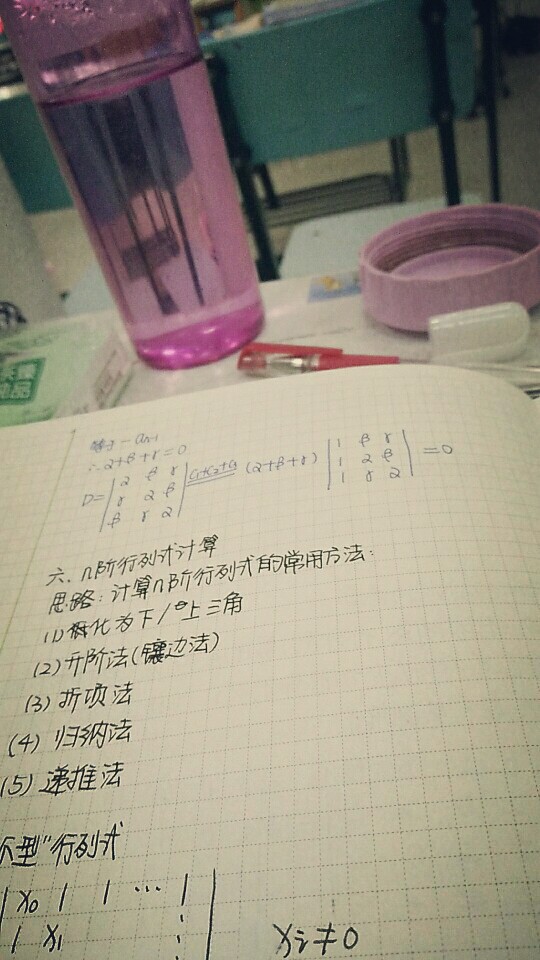 等于-an-1
∴2+β+γ=0
D=|2 β γ|
|γ 2 β|
|β γ 2| C1+C2+C3 (2+β+γ) |1 β γ|
|1 2 β|
|1 γ 2| =0
六、n阶行列式计算
思路:计算n阶行列式的常用方法:
(1)化为下/上三角
(2)升阶法(镶边法)
(3)折项法
(4)归纳法
(5)递推法
型"行列式
| x0 1 1 … 1 |
1 x1 ⋮ xi≠0